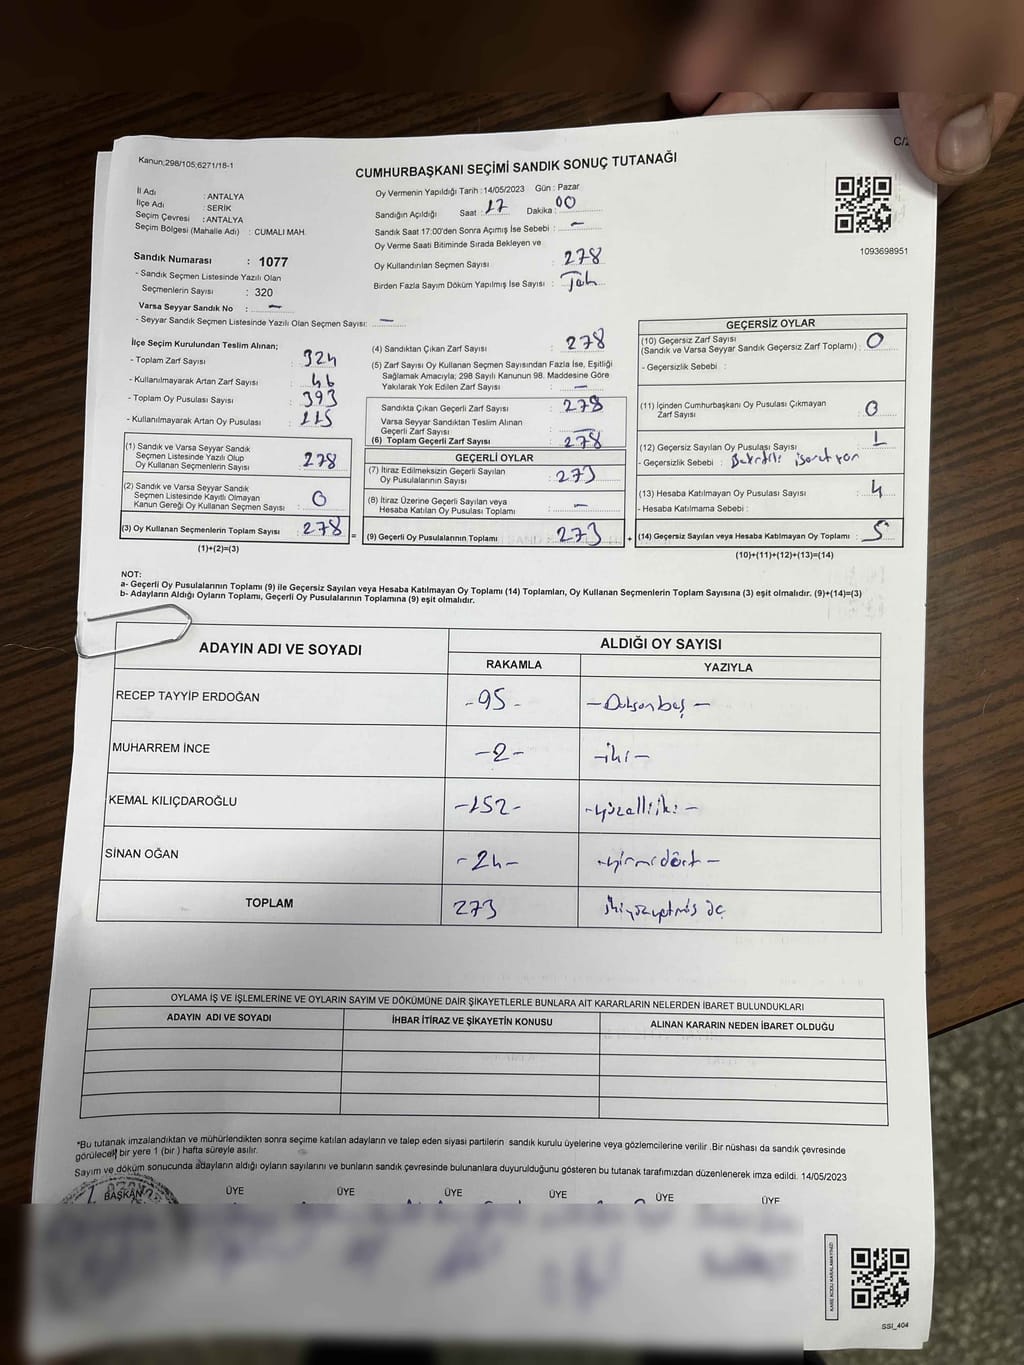 Kanun;298/105;6271/18-1
C/2
CUMHURBAŞKANI SEÇİMİ SANDIK SONUÇ TUTANAĞI
İl Adı : ANTALYA
İlçe Adı : SERİK
Seçim Çevresi : ANTALYA
Seçim Bölgesi (Mahalle Adı) : CUMALI MAH.
Sandık Numarası : 1077
- Sandık Seçmen Listesinde Yazılı Olan
Seçmenlerin Sayısı : 320
Varsa Seyyar Sandık No : —
- Seyyar Sandık Seçmen Listesinde Yazılı Olan Seçmen Sayısı: —
Oy Vermenin Yapıldığı Tarih : 14/05/2023 Gün : Pazar
Sandığın Açıldığı Saat : 17 Dakika : 00
Sandık Saat 17:00'den Sonra Açımış İse Sebebi : —
Oy Verme Saati Bitiminde Sırada Bekleyen ve
Oy Kullandırılan Seçmen Sayısı : 278
Birden Fazla Sayım Döküm Yapılmış İse Sayısı :
1093698951
İlçe Seçim Kurulundan Teslim Alınan;
- Toplam Zarf Sayısı : 324
- Kullanılmayarak Artan Zarf Sayısı : 46
- Toplam Oy Pusulası Sayısı : 393
- Kullanılmayarak Artan Oy Pusulası : 115
(1) Sandık ve Varsa Seyyar Sandık
Seçmen Listesinde Yazılı Olup
Oy Kullanan Seçmenlerin Sayısı : 278
(2) Sandık ve Varsa Seyyar Sandık
Seçmen Listesinde Kayıtlı Olmayan
Kanun Gereği Oy Kullanan Seçmen Sayısı : 0
(3) Oy Kullanan Seçmenlerin Toplam Sayısı : 278 =
(1)+(2)=(3)
(4) Sandıktan Çıkan Zarf Sayısı : 278
(5) Zarf Sayısı Oy Kullanan Seçmen Sayısından Fazla İse, Eşitliği
Sağlamak Amacıyla; 298 Sayılı Kanunun 98. Maddesine Göre
Yakılarak Yok Edilen Zarf Sayısı : —
Sandıkta Çıkan Geçerli Zarf Sayısı : 278
Varsa Seyyar Sandıktan Teslim Alınan
Geçerli Zarf Sayısı : —
(6) Toplam Geçerli Zarf Sayısı : 278
GEÇERLİ OYLAR
(7) İtiraz Edilmeksizin Geçerli Sayılan
Oy Pusulalarının Sayısı : 273
(8) İtiraz Üzerine Geçerli Sayılan veya
Hesaba Katılan Oy Pusulası Toplamı : —
(9) Geçerli Oy Pusulalarının Toplamı : 273 +
GEÇERSİZ OYLAR
(10) Geçersiz Zarf Sayısı
(Sandık ve Varsa Seyyar Sandık Geçersiz Zarf Toplamı) : 0
- Geçersizlik Sebebi :
(11) İçinden Cumhurbaşkanı Oy Pusulası Çıkmayan
Zarf Sayısı : 0
(12) Geçersiz Sayılan Oy Pusulası Sayısı : 1
- Geçersizlik Sebebi :
(13) Hesaba Katılmayan Oy Pusulası Sayısı : 4
- Hesaba Katılmama Sebebi :
(14) Geçersiz Sayılan veya Hesaba Katılmayan Oy Toplamı : 5
(10)+(11)+(12)+(13)=(14)
NOT:
a- Geçerli Oy Pusulalarının Toplamı (9) ile Geçersiz Sayılan veya Hesaba Katılmayan Oy Toplamı (14) Toplamları, Oy Kullanan Seçmenlerin Toplam Sayısına (3) eşit olmalıdır. (9)+(14)=(3)
b- Adayların Aldığı Oyların Toplamı, Geçerli Oy Pusulalarının Toplamına (9) eşit olmalıdır.
ADAYIN ADI VE SOYADI ALDIĞI OY SAYISI
RAKAMLA YAZIYLA
RECEP TAYYİP ERDOĞAN -95- -Doksanbeş-
MUHARREM İNCE -2- -iki-
KEMAL KILIÇDAROĞLU -152- -yüzelliiki-
SİNAN OĞAN -24- -yirmidört-
TOPLAM 273 ikiyüzyetmiş üç
OYLAMA İŞ VE İŞLEMLERİNE VE OYLARIN SAYIM VE DÖKÜMÜNE DAİR ŞİKAYETLERLE BUNLARA AİT KARARLARIN NELERDEN İBARET BULUNDUKLARI
ADAYIN ADI VE SOYADI İHBAR İTİRAZ VE ŞİKAYETİN KONUSU ALINAN KARARIN NEDEN İBARET OLDUĞU
*Bu tutanak imzalandıktan ve mühürlendikten sonra seçime katılan adayların ve talep eden siyasi partilerin sandık kurulu üyelerine veya gözlemcilerine verilir .Bir nüshası da sandık çevresinde
görülecek bir yere 1 (bir ) hafta süreyle asılır.
Sayım ve döküm sonucunda adayların aldığı oyların sayılarını ve bunların sandık çevresinde bulunanlara duyurulduğunu gösteren bu tutanak tarafımızdan düzenlenerek imza edildi. 14/05/2023
BAŞKAN ÜYE ÜYE ÜYE ÜYE ÜYE ÜYE
KARE KODU KARALAMAYINIZ!
SSI_404